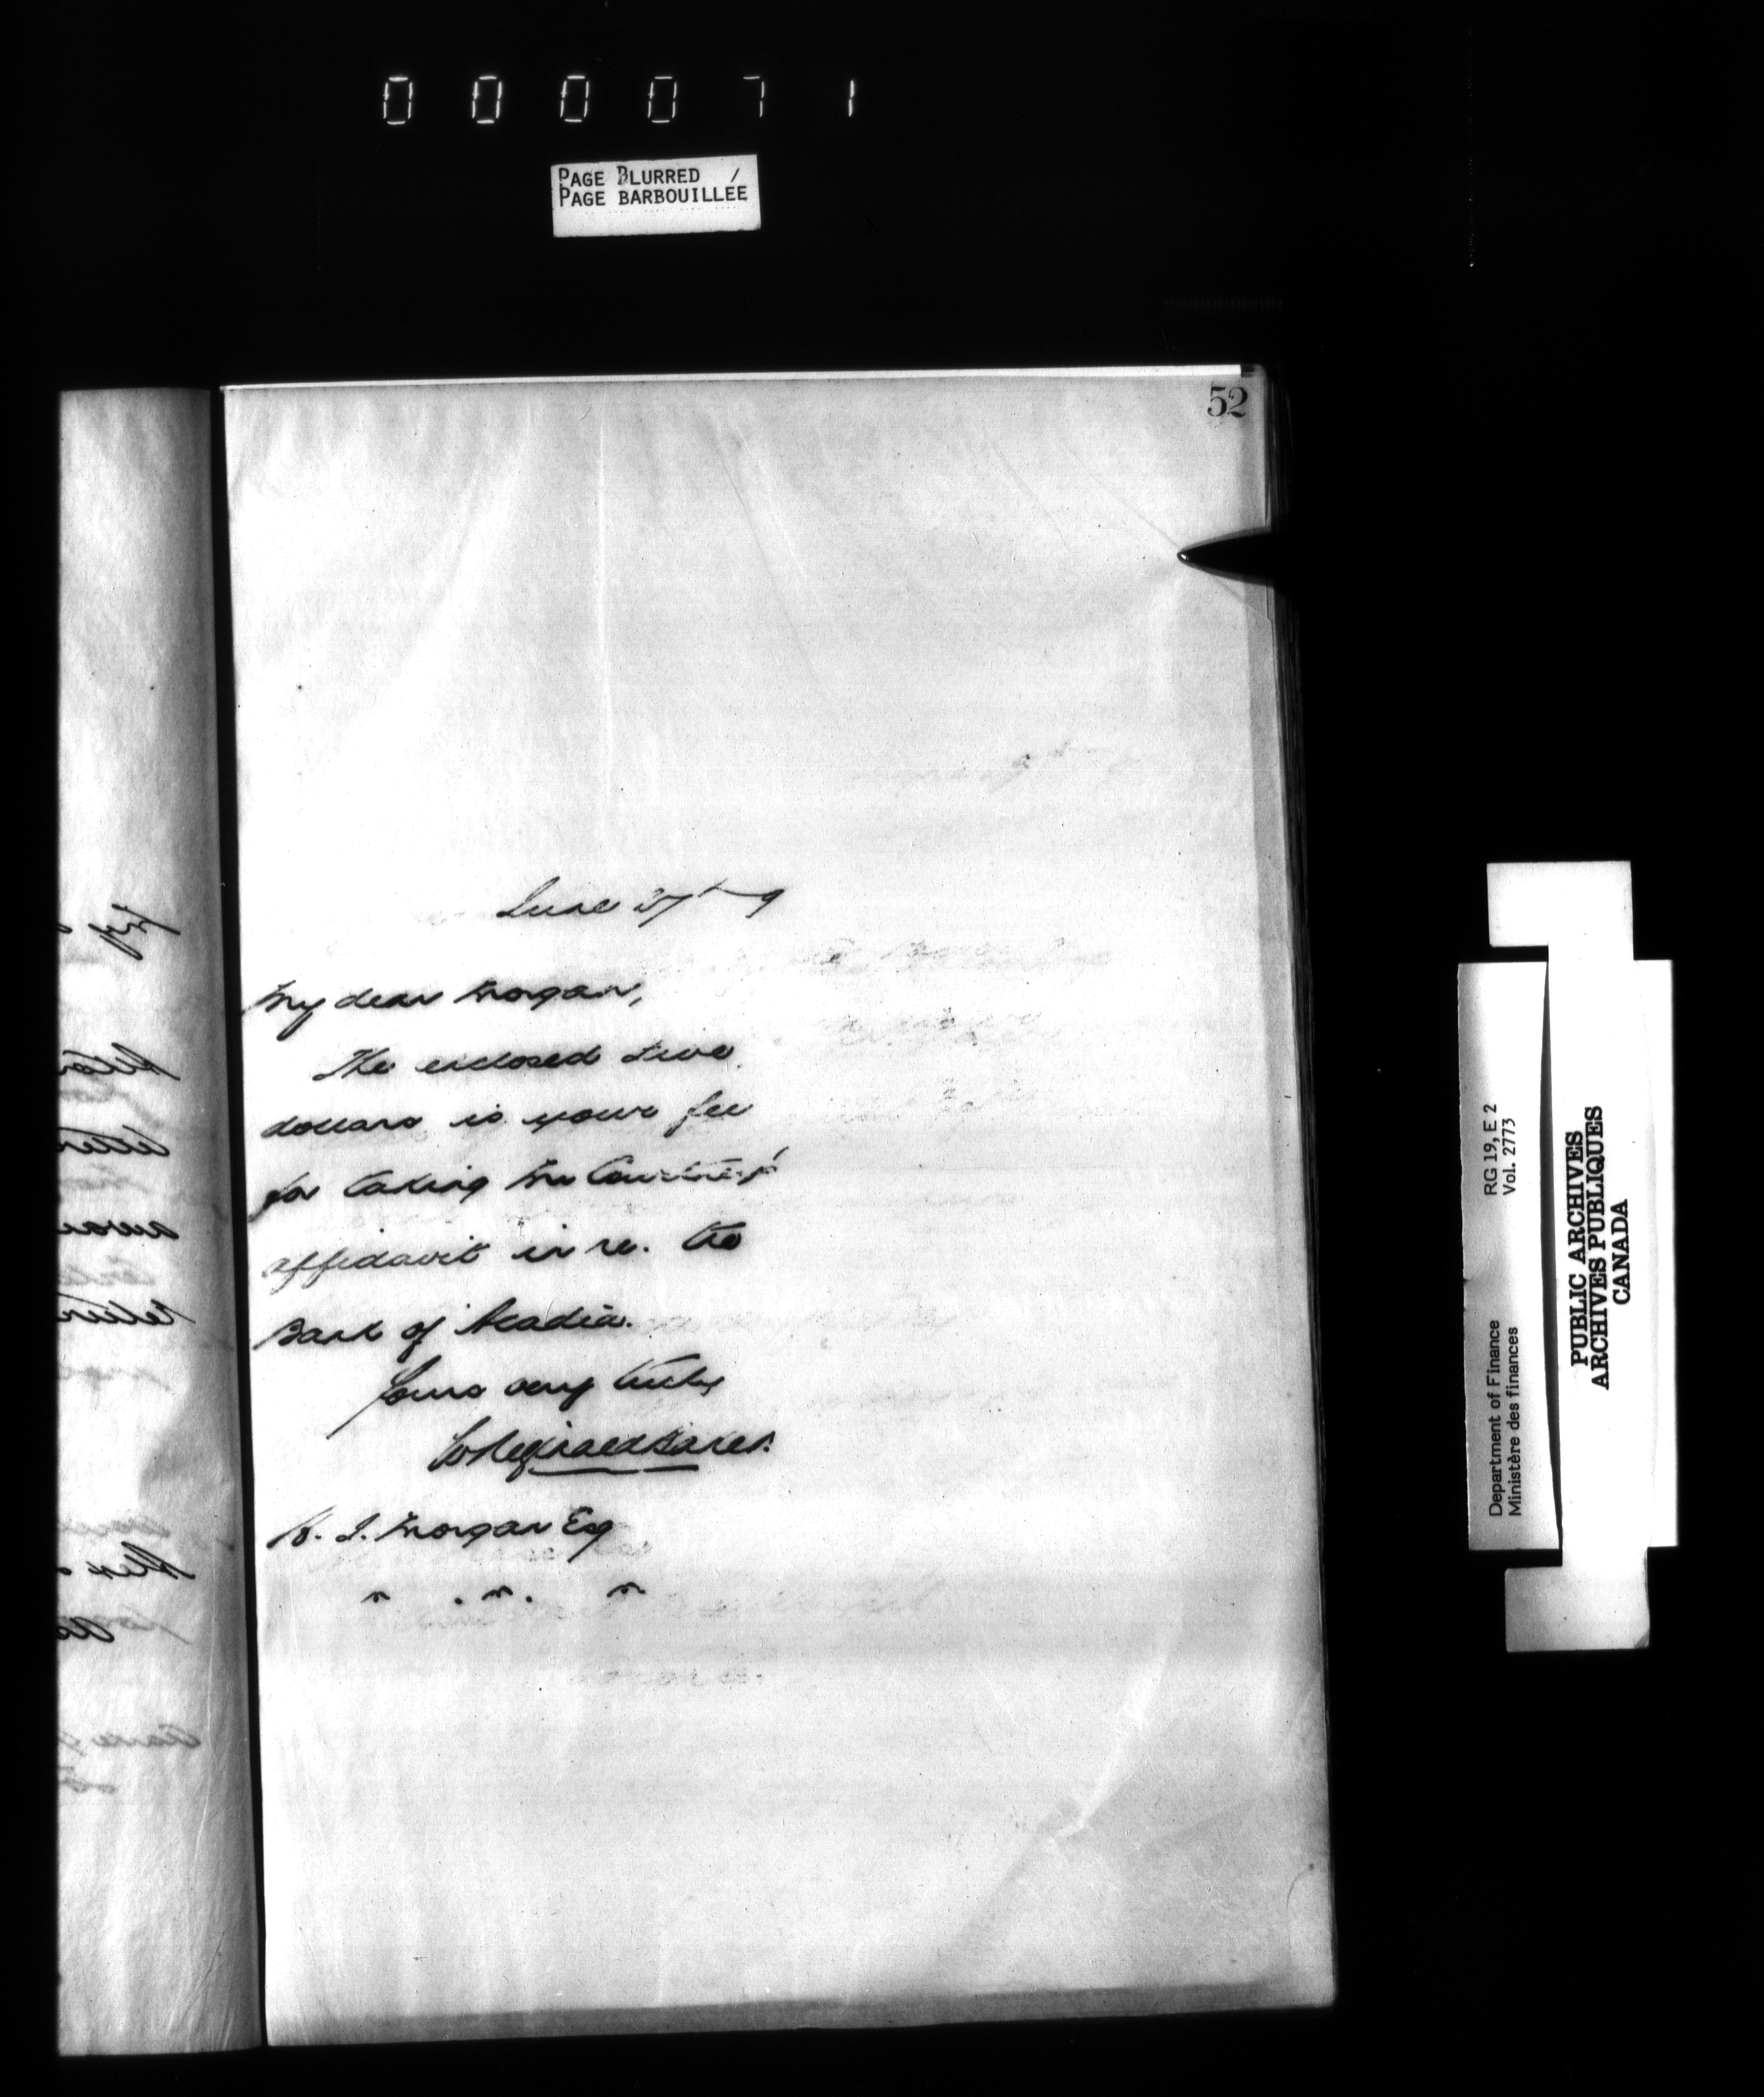 000071
PAGE BLURRED /
PAGE BARBOUILLÉE
52
June 27th 9
My dear Morgan,
The enclosed two
dollars is your fee
for taking Mr Courtney's
affidavit in re. the
Bank of Acadia.
Yours very truly
H. J. Morgan Esq
Department of Finance RG 19, E 2
Ministère des finances Vol. 2773
PUBLIC ARCHIVES
ARCHIVES PUBLIQUES
CANADA